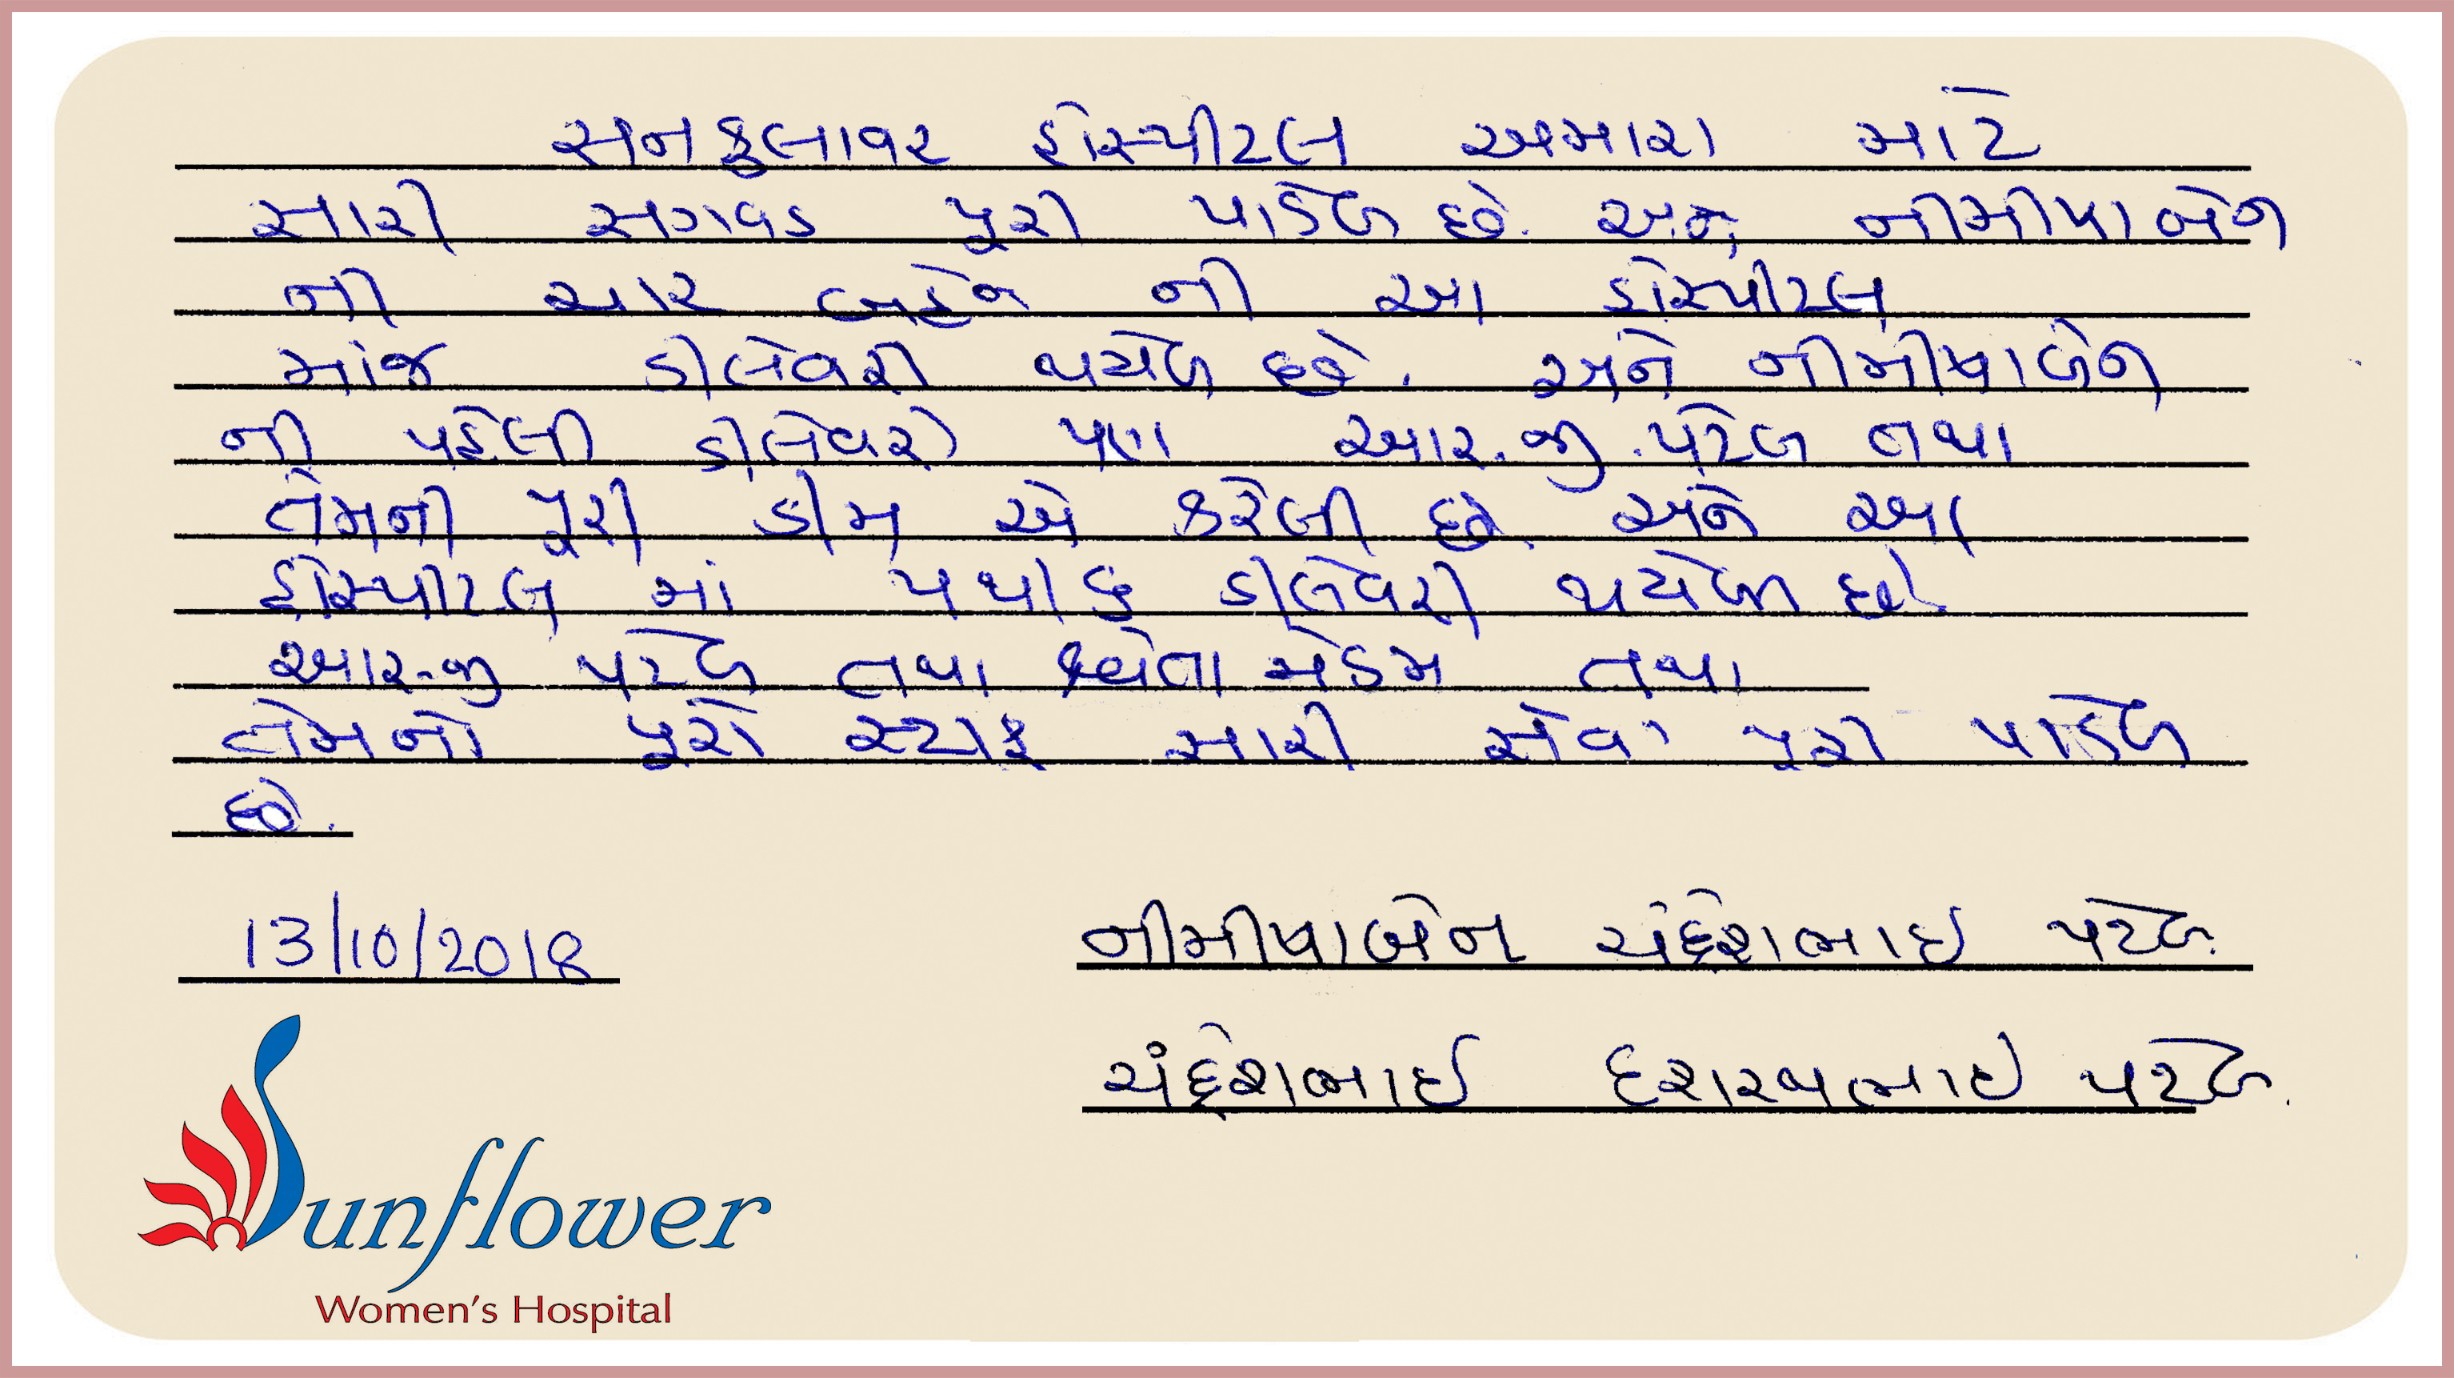 સનફલાવર હોસ્પીટલ અમારા માટે
સારી સગવડ પૂરી પાડેલ છે. અને નીમીષાબેન
ની ચાર બહેન ની આ હોસ્પીટલ
માંજ ડીલેવરી થયેલ છે. અને નીમીષાબેન
ની પહેલી ડીલેવરી પણ આર.જી.પટેલ તથા
તેમની પૂરી ટીમ એ કરેલી છે. અને આ
હોસ્પીટલ માં ડીલેવરી થયેલ છે.
આર.જી પટેલ તથા શ્વેતા મેડમ તથા
તેમનો પૂરો સ્ટાફ સારી સેવા પૂરી પાડેલ
છે.
13/10/2018
નીમીષાબેન ચંદ્રેશભાઇ પટેલ
ચંદ્રેશભાઈ દશરથભાઇ પટેલ.
Sunflower
Women's Hospital